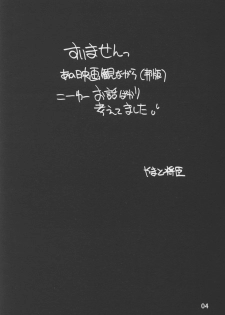 すいませんっ
あの映画観ながら(劇版)
こーゆー お話ばかり
考えてました。
やまと将臣
04